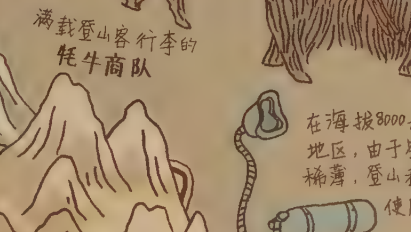 满载登山客行李的
牦牛商队
在海拔8000
地区,由于
稀薄,登山
使